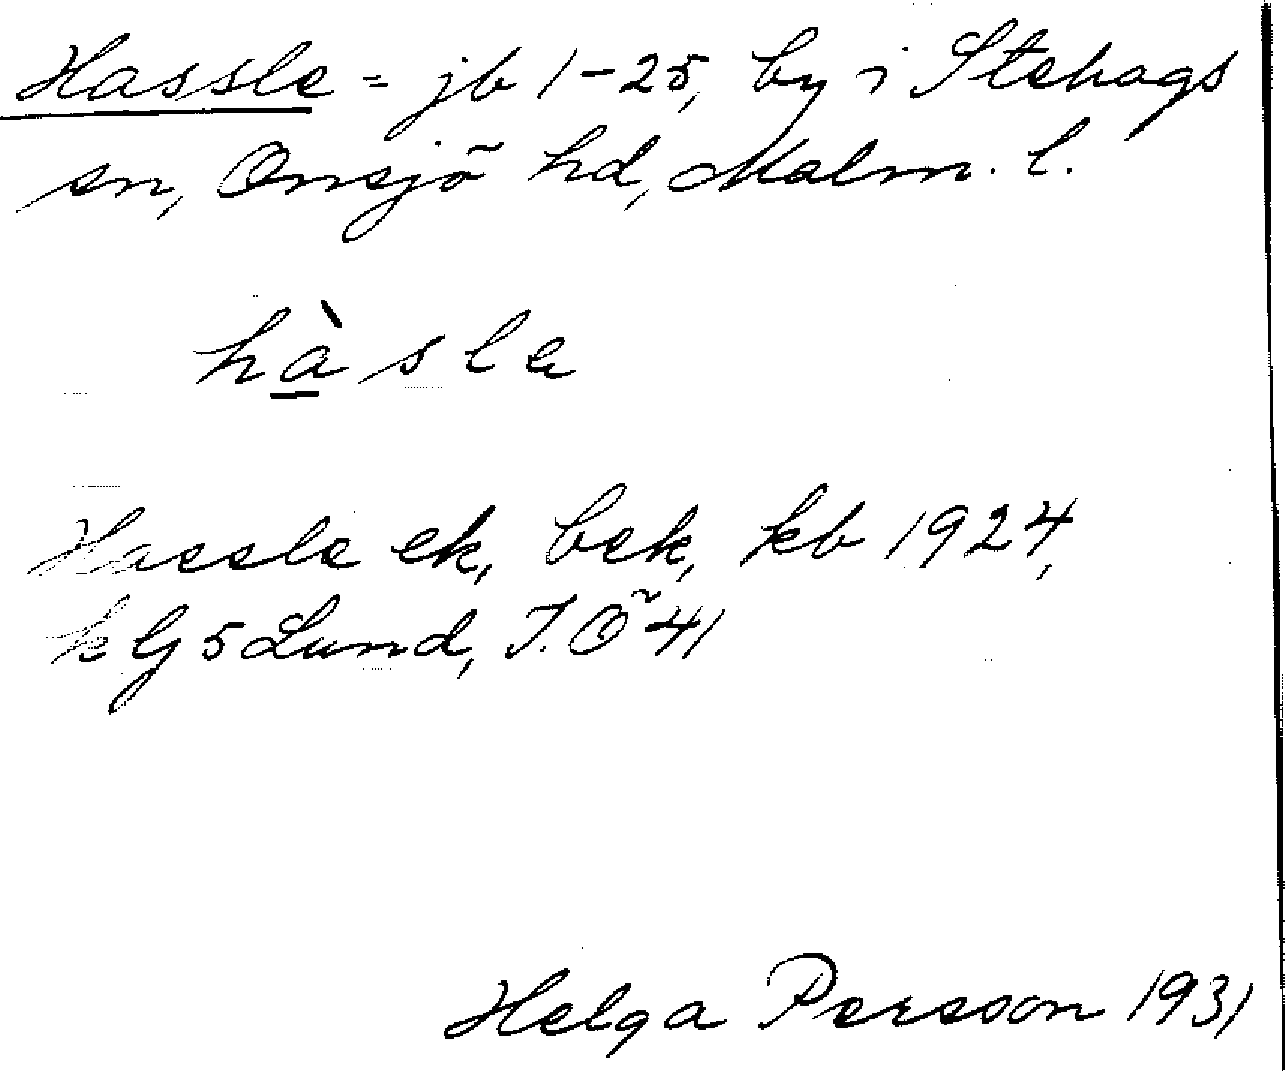 Hassle = jb 1-25, by i Stehags
sn, Onsjö hd, Malm. l.
hàsle
Hassle ek, bek, kb 1924,
k G 5 Lund, J. Ö 41
Helga Persson 1931